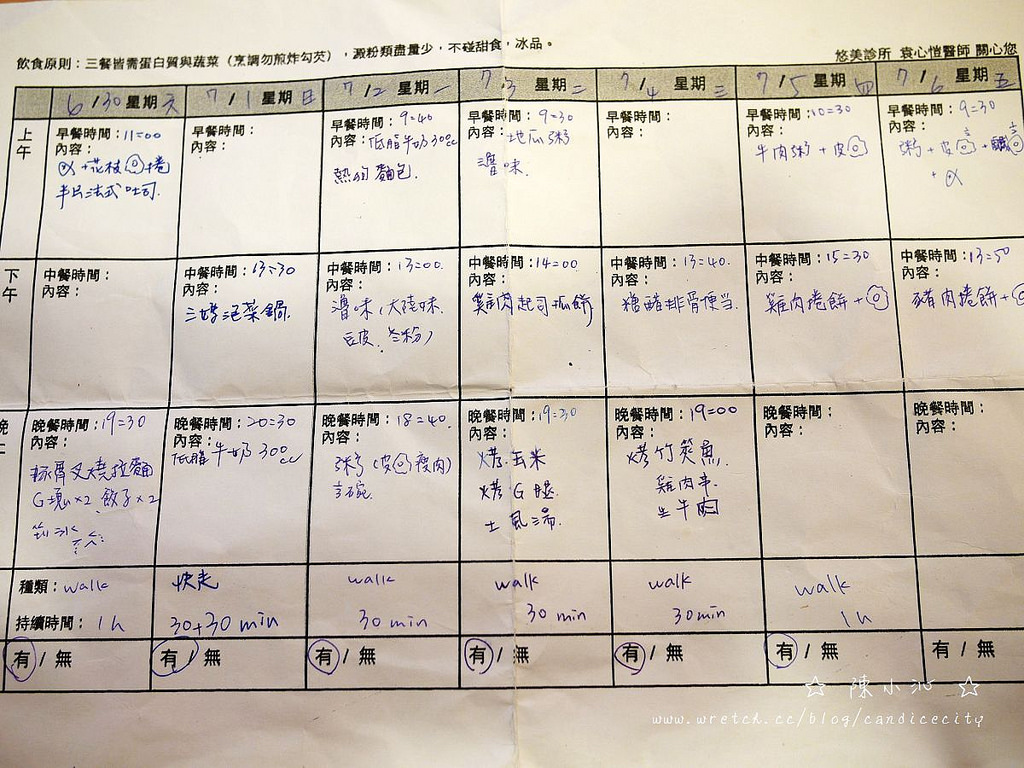 飲食原則：三餐皆需蛋白質與蔬菜（烹調勿煎炸勾芡），澱粉類盡量少，不碰甜食，冰品。
悠美診所 袁心愷醫師 關心您
6/30星期六 7/1星期日 7/2星期一 7/3星期二 7/4星期三 7/5星期四 7/6星期五
上午
早餐時間：11=00
內容：
+花枝 捲
半片法式吐司.
早餐時間：
內容：
早餐時間：9=40
內容：低脂牛奶300cc
熱狗麵包.
早餐時間：9=30
內容：地瓜粥
滷味.
早餐時間：
內容：
早餐時間：10=30
內容：
牛肉粥+皮
早餐時間：9=30
內容：
粥+皮
下午
中餐時間：
內容：
中餐時間：13=30
內容：
泡菜鍋.
中餐時間：13=00.
內容：
滷味(
豆皮.冬粉)
中餐時間：14=00
內容：
雞肉起司抓餅
中餐時間：13=40.
內容：
糖醋排骨便当.
中餐時間：15=30
內容：
雞肉捲餅+
中餐時間：13=50
內容：
豬肉捲餅+
晚
晚餐時間：19=30
內容：
豚骨叉燒拉麵
G塊×2 餃子×2
晚餐時間：20=30
內容：
低脂牛奶300cc
晚餐時間：18=40.
內容：
粥(皮 瘦肉)
晚餐時間：19=30
內容：
烤玉米
烤G
晚餐時間：19=00
內容：
烤竹筴魚.
雞肉串.
生牛肉
晚餐時間：
內容：
晚餐時間：
內容：
種類：walk 快走 walk walk walk walk
持續時間：1h 30+30min 30min 30min 30min 1h
有/無 有/無 有/無 有/無 有/無 有/無 有/無
☆ 陳小沁 ☆
www.wretch.cc/blog/candicecity